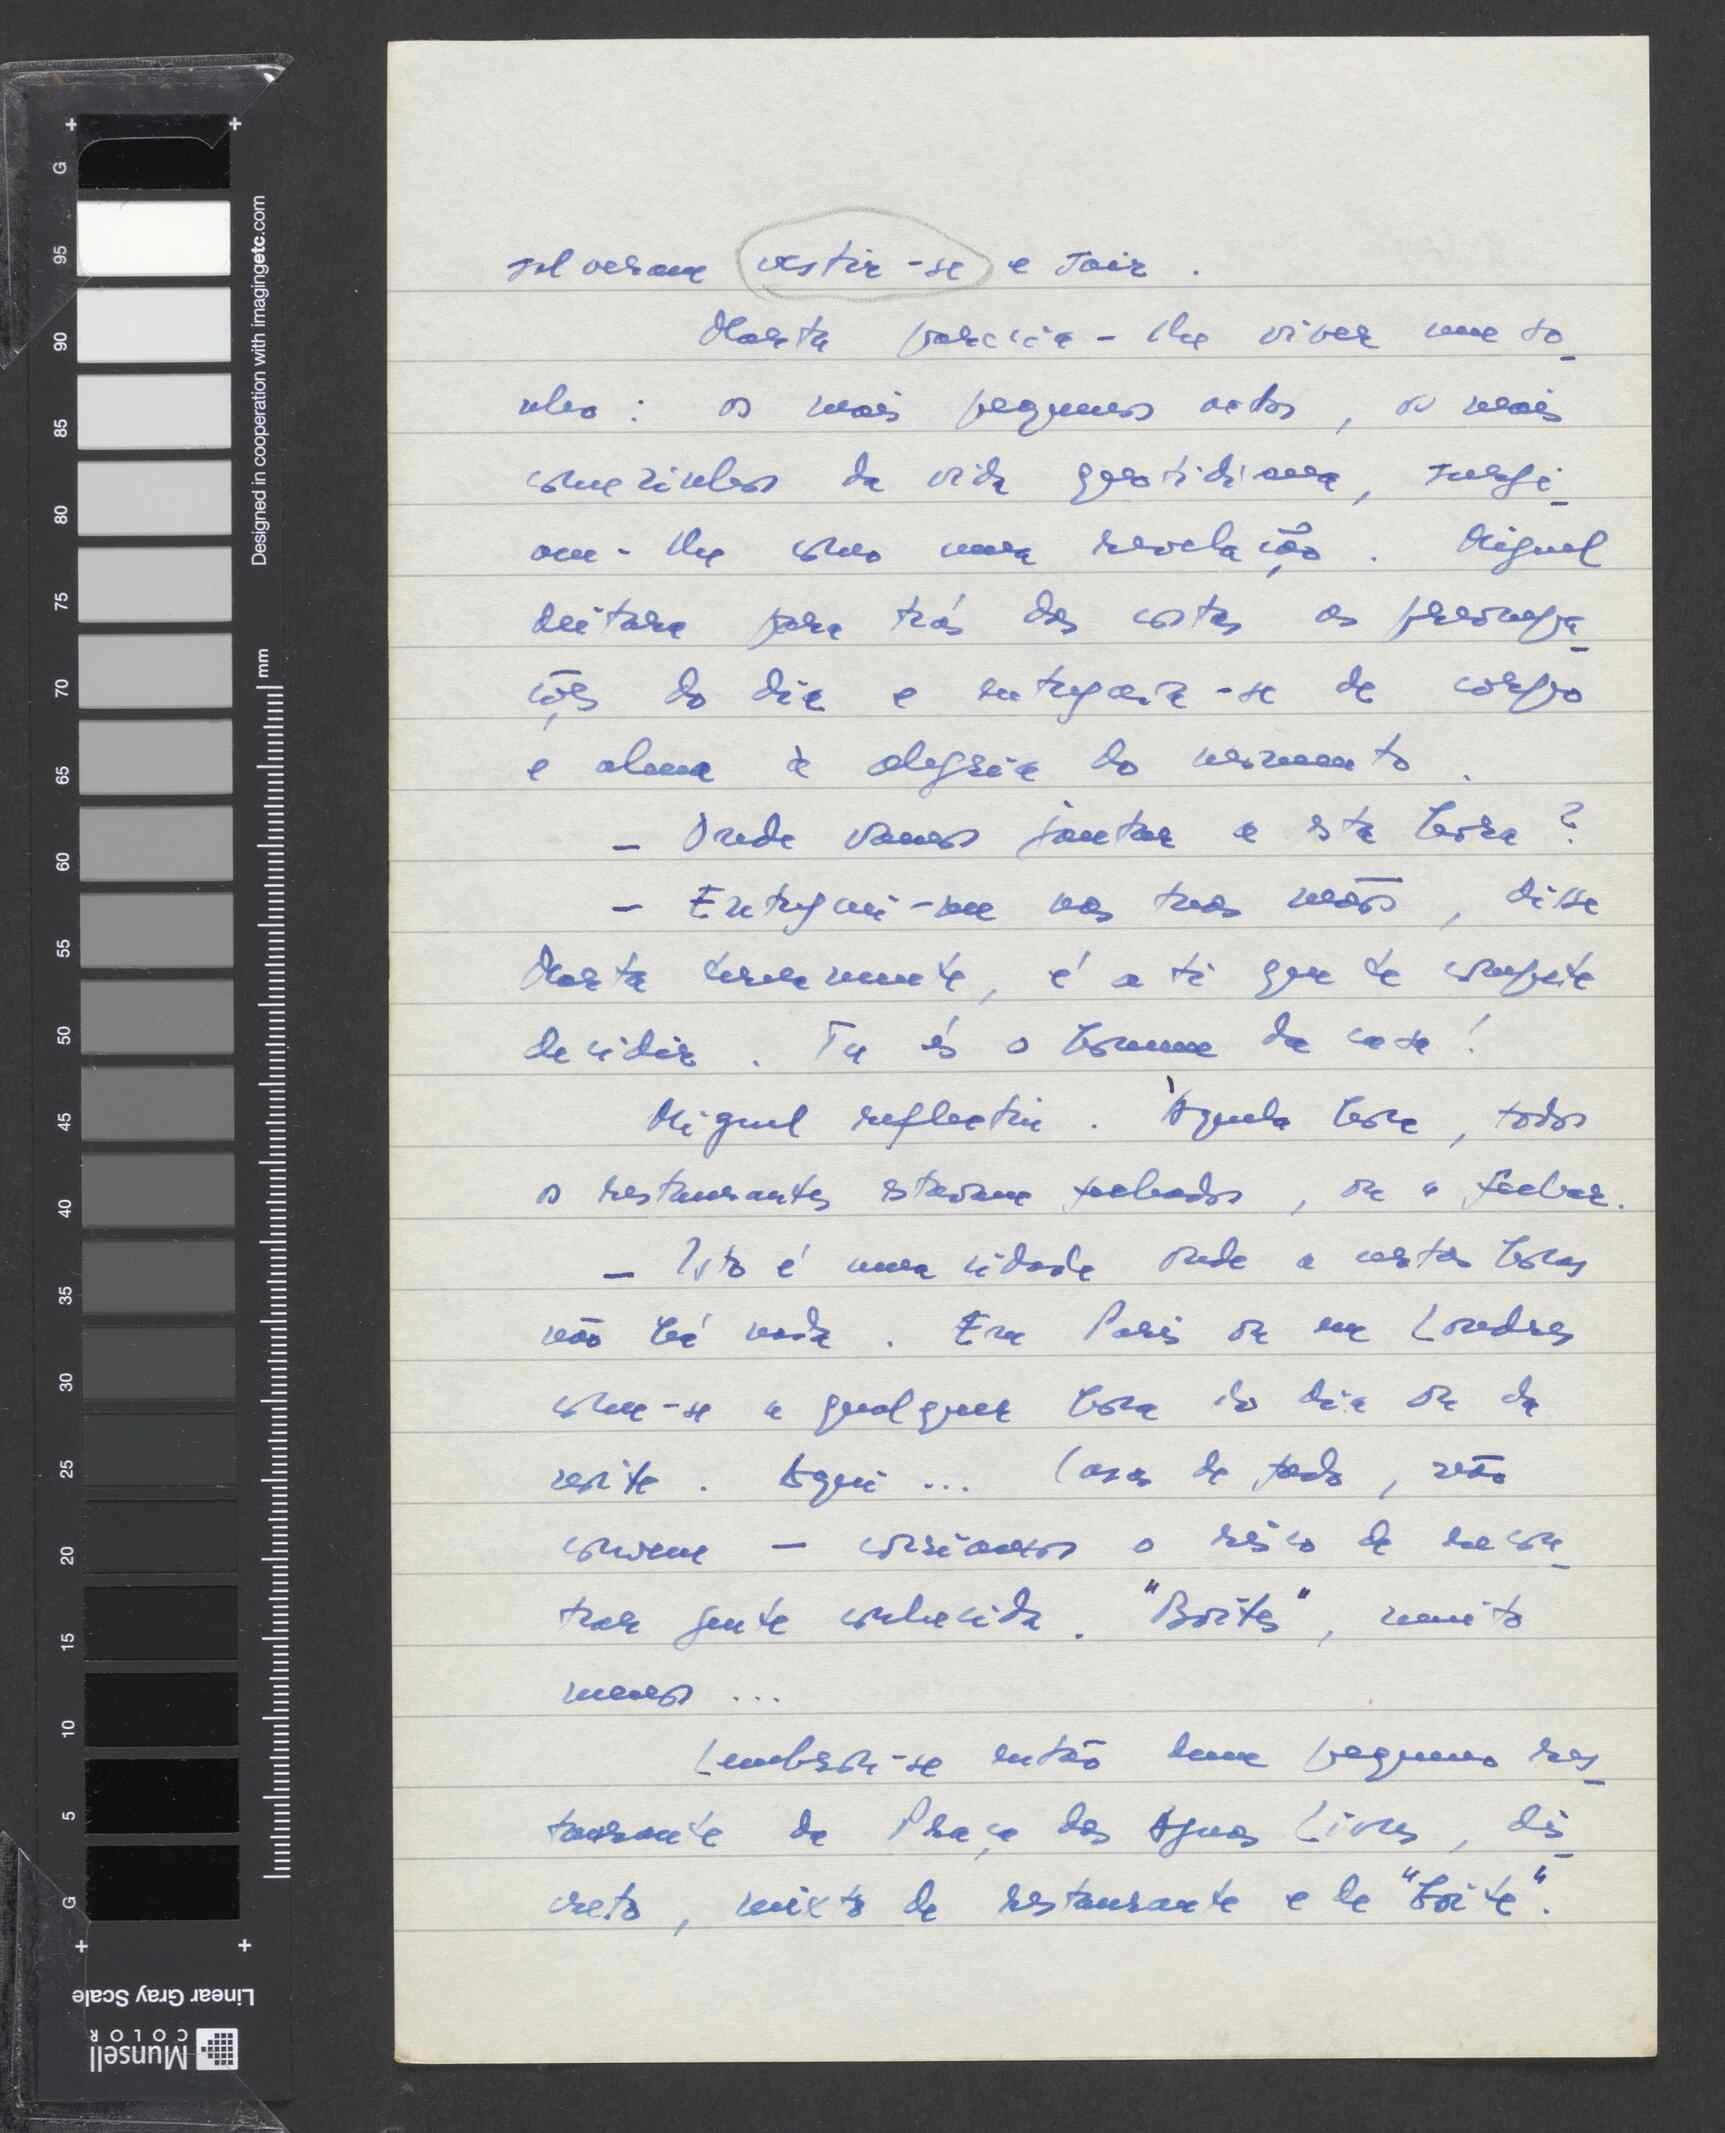 solveram vestir-se e sair.
Marta parecia-lhe viver um so_
nho: os mais pequenos actos, os mais
comezinhos da vida quotidiana, surgi_
am-lhe como uma revelação. Miguel
deitara para trás das costas as preocupa_
ções do dia e entregara-se de corpo
e alma à alegria do momento.
– Onde vamos jantar a esta hora?
– Entreguei-me nas tuas mãos, disse
Marta ternamente, é a ti que te compete
decidir. Tu és o homem da casa!
Miguel reflectiu. Àquela hora, todos
os restaurantes estavam fechados, ou a fechar.
– Isto é uma cidade onde a certas horas
não há nada. Em Paris ou em Londres
come-se a qualquer hora do dia ou da
noite. Aqui... Casas de fado, não
convem – corriamos o risco de encon_
trar gente conhecida. "Boites", muito
menos...
Lembrou-se então dum pequeno res_
taurante da Praça das Aguas Livres, dis_
creto, mixto de restaurante e de "boite".
G 95 90 85 80 75 70 65 60 55 50 45 40 35 30 25 20 15 10 5 G
Designed in cooperation with imagingetc.com
mm
Linear Gray Scale
Munsell
COLOR